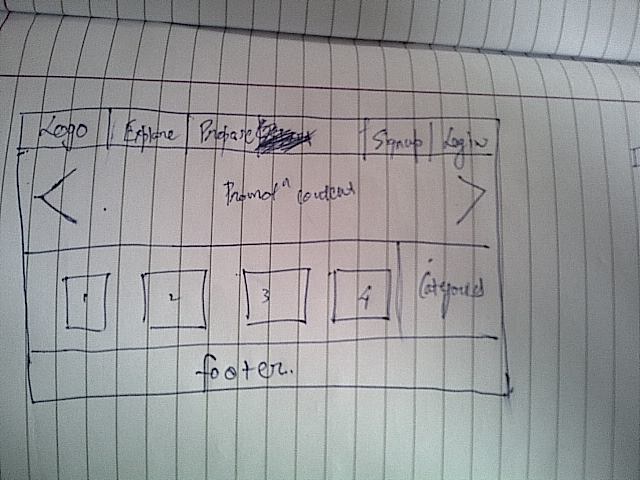 Logo | Explore | Prepare | Signup | Login
Promoⁿ content
1 2 3 4 Categories
footer.